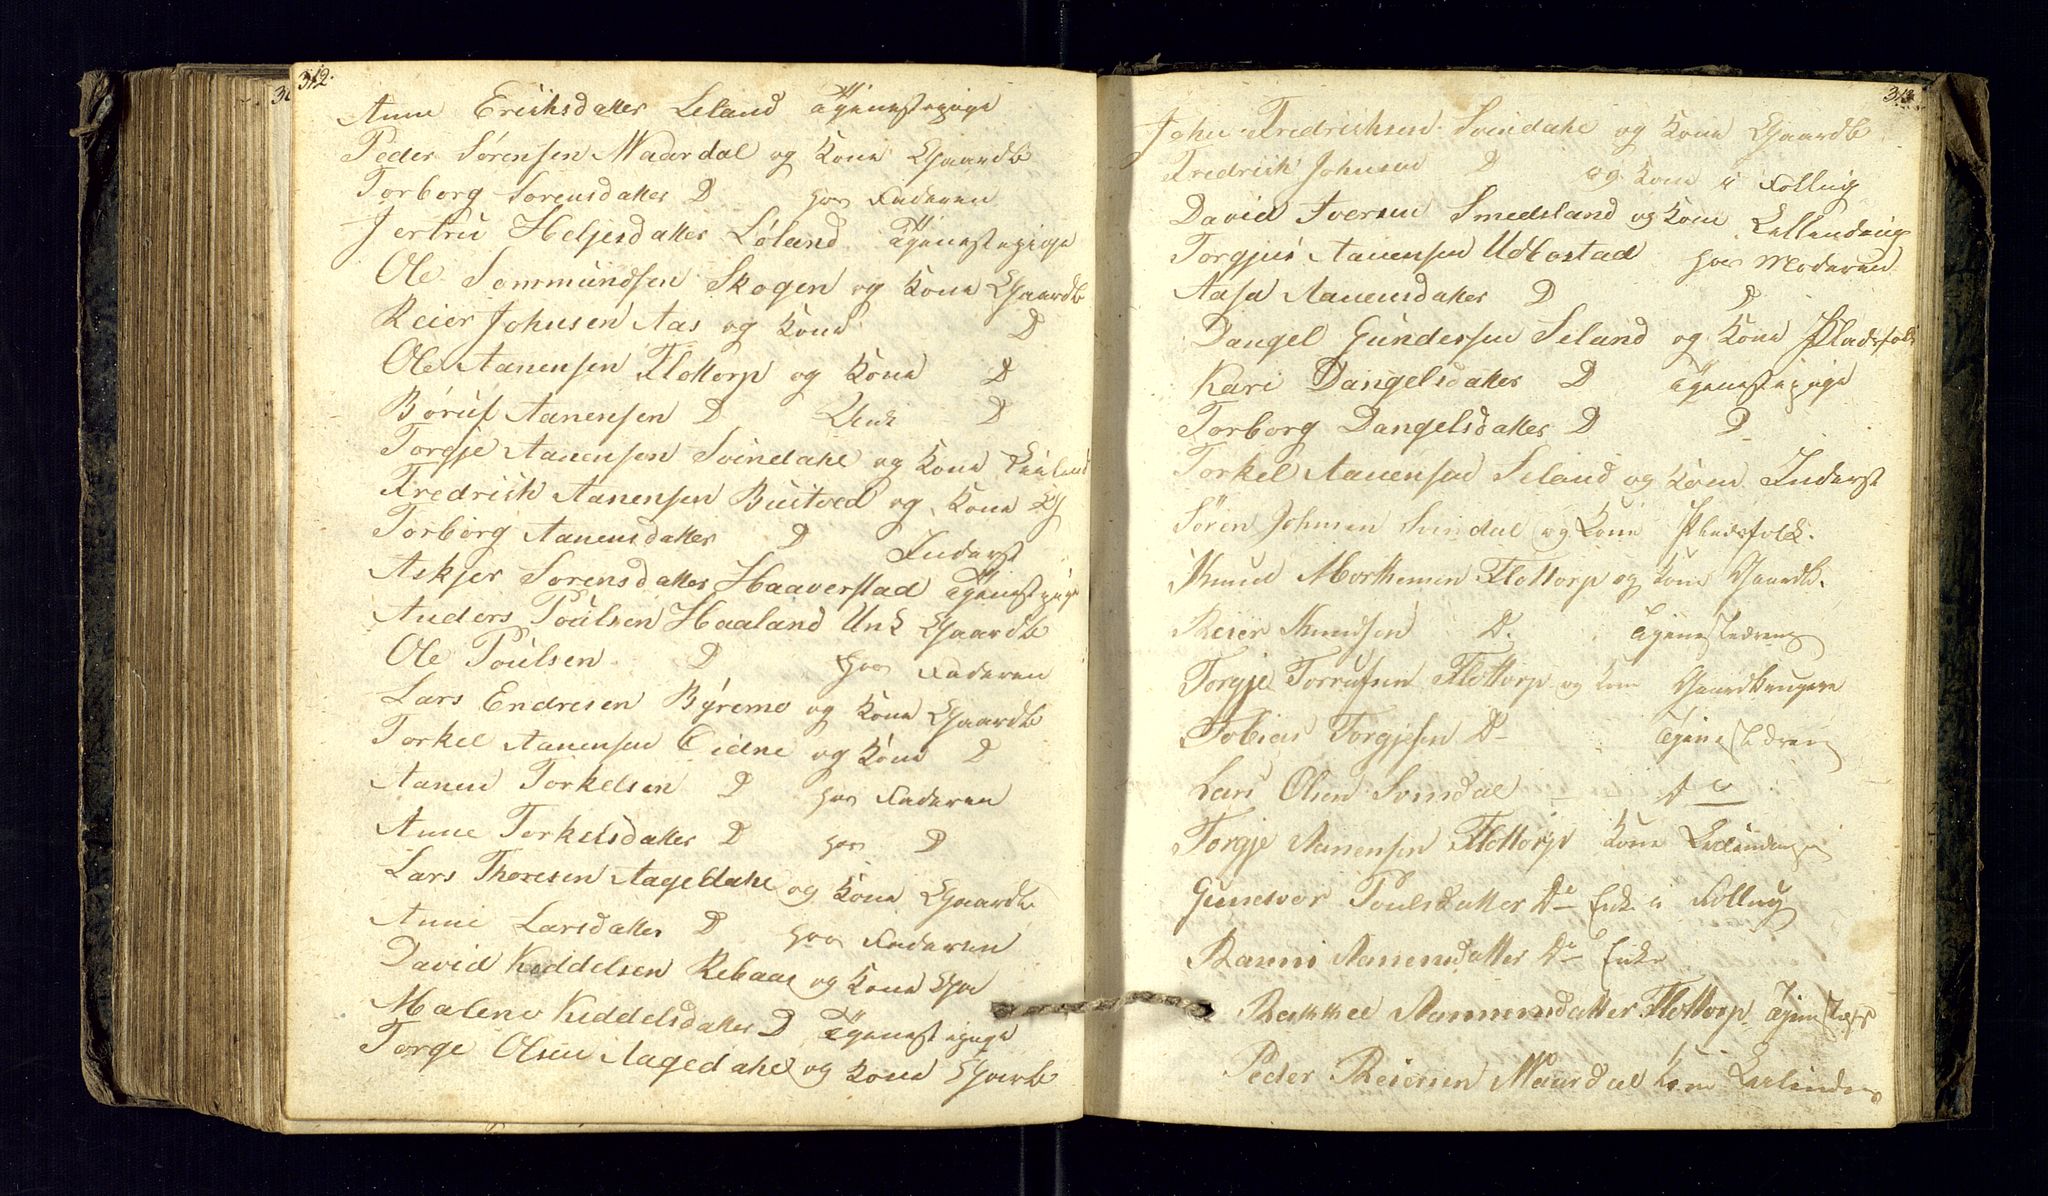 312.
Anne Eriksdatter Leland Tjenestepige
Peder Sørensen Maardal og Kone Gaardb
Torborg Sørensdatter D hos Faderen
Jertru Heljesdatter Løland Tjenestepige
Ole Sommundsen Skogen og Kone Gaardb
Reier Johnsen Aas og Kone D
Ole Aanensen Flottorp og Kone D
Børuf Aanensen D Unk D
Torgje Aanensen Svindahl og Kone Leilend
Fredrich Aanensen Bustved og Kone G
Torborg Aanensdatter D Inderst
Askjer Sørensdatter Haaverstad Tjenestpige
Anders Poulsen Haaland Unk Gaardb
Ole Poulsen D hos Faderen
Lars Endresen Byremo og Kone Gaardb
Torkel Aanensen Eidne og Kone D
Aanen Torkelsen D hos Faderen
Anne Torkelsdatter D hos D
Lars Thoresen Aagedahl og Kone Gaardb
Anne Larsdatter D hos Faderen
David Keddelsen Rebaas og Kone
Malene Keddelsdatter D Tjenestepige
Torge Olsen Aagedahl og Kone Gaarb
313
John Fredrichsen Svindahl og Kone Gaardb
Fredrich Johnsen D og Kone i Follug
David Iversen Smedsland og Kone
Torgjus Aanensen Udbostad hos Moderen
Aasa Aanensdatter D D
Dangel Gundersen Seland og Kone Pladsfolk
Kari Dangelsdatter D Tjenestepige
Torborg Dangelsdatter D D
Torkel Aanensen Seland og Kone Inderst
Søren Johnsen Svindal og Kone Pladsfolk.
Knud Morthensen Flottorp og Kone Gaardb.
Reier Knudsen D. Tjenestedreng
Torgje Torrufsen Flottorp og Kone Gaardbrugere
Tobias Torgjesen D Tjenestedreng
Lars Olsen Svindal
Torgje Aanensen Flottorp Kone
Gundvor Poulsdatter Do Enke i Follug
Aanensdatter Do Enke
Aanensdatter Flottorp
Peder Reiersen Maardal Kone